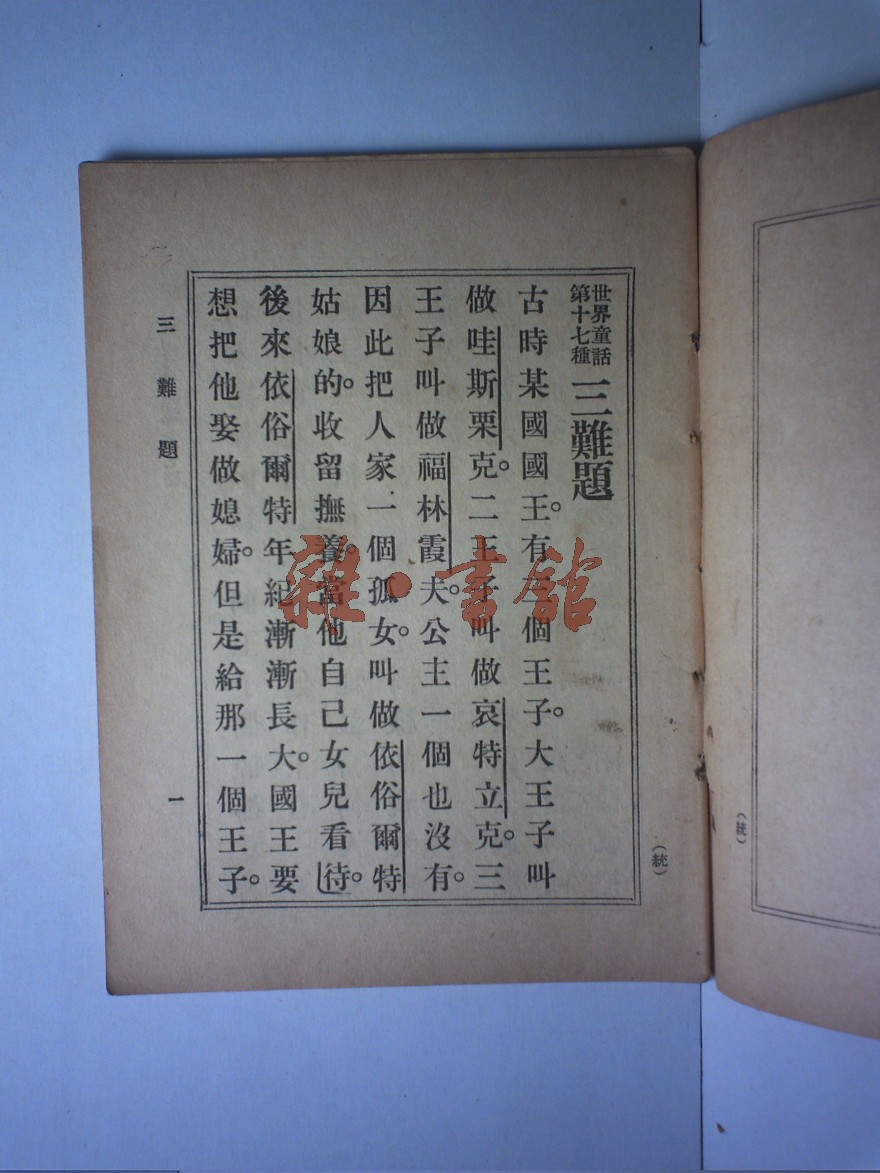 (統)
(統)
世界童話
第十七種
三難題
古時某國國王。有三個王子。大王子叫
做哇斯栗克。二王子叫做哀特立克。三
王子叫做福林霞夫。公主一個也沒有。
因此把人家一個孤女。叫做依俗爾特
姑娘的。收留撫養。當他自己女兒看待。
後來依俗爾特年紀漸漸長大。國王要
想把他娶做媳婦。但是給那一個王子。
三難題
一
雜·書館